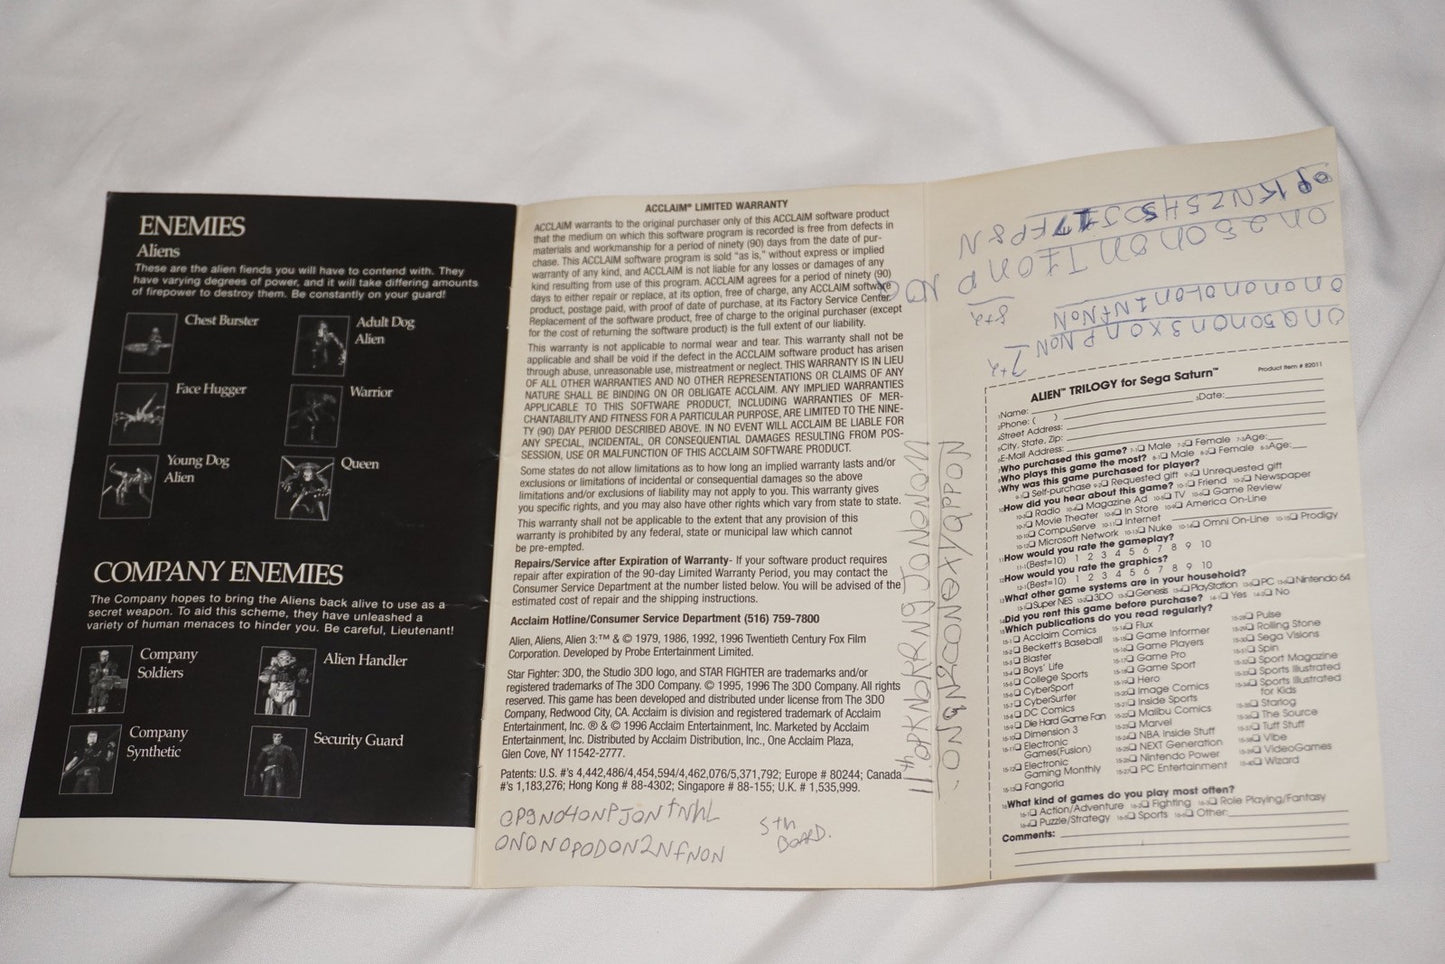 ENEMIES
Aliens
These are the alien fiends you will have to contend with. They
have varying degrees of power, and it will take differing amounts
of firepower to destroy them. Be constantly on your guard!
Chest Burster
Adult Dog
Alien
Face Hugger
Warrior
Young Dog
Alien
Queen
COMPANY ENEMIES
The Company hopes to bring the Aliens back alive to use as a
secret weapon. To aid this scheme, they have unleashed a
variety of human menaces to hinder you. Be careful, Lieutenant!
Company
Soldiers
Alien Handler
Company
Synthetic
Security Guard
ACCLAIM® LIMITED WARRANTY
ACCLAIM warrants to the original purchaser only of this ACCLAIM software product
that the medium on which this software program is recorded is free from defects in
materials and workmanship for a period of ninety (90) days from the date of pur-
chase. This ACCLAIM software program is sold "as is," without express or implied
warranty of any kind, and ACCLAIM is not liable for any losses or damages of any
kind resulting from use of this program. ACCLAIM agrees for a period of ninety (90)
days to either repair or replace, at its option, free of charge, any ACCLAIM software
product, postage paid, with proof of date of purchase, at its Factory Service Center.
Replacement of the software product, free of charge to the original purchaser (except
for the cost of returning the software product) is the full extent of our liability.
This warranty is not applicable to normal wear and tear. This warranty shall not be
applicable and shall be void if the defect in the ACCLAIM software product has arisen
through abuse, unreasonable use, mistreatment or neglect. THIS WARRANTY IS IN LIEU
OF ALL OTHER WARRANTIES AND NO OTHER REPRESENTATIONS OR CLAIMS OF ANY
NATURE SHALL BE BINDING ON OR OBLIGATE ACCLAIM. ANY IMPLIED WARRANTIES
APPLICABLE TO THIS SOFTWARE PRODUCT, INCLUDING WARRANTIES OF MER-
CHANTABILITY AND FITNESS FOR A PARTICULAR PURPOSE, ARE LIMITED TO THE NINE-
TY (90) DAY PERIOD DESCRIBED ABOVE. IN NO EVENT WILL ACCLAIM BE LIABLE FOR
ANY SPECIAL, INCIDENTAL, OR CONSEQUENTIAL DAMAGES RESULTING FROM POS-
SESSION, USE OR MALFUNCTION OF THIS ACCLAIM SOFTWARE PRODUCT.
Some states do not allow limitations as to how long an implied warranty lasts and/or
exclusions or limitations of incidental or consequential damages so the above
limitations and/or exclusions of liability may not apply to you. This warranty gives
you specific rights, and you may also have other rights which vary from state to state.
This warranty shall not be applicable to the extent that any provision of this
warranty is prohibited by any federal, state or municipal law which cannot
be pre-empted.
Repairs/Service after Expiration of Warranty- If your software product requires
repair after expiration of the 90-day Limited Warranty Period, you may contact the
Consumer Service Department at the number listed below. You will be advised of the
estimated cost of repair and the shipping instructions.
Acclaim Hotline/Consumer Service Department (516) 759-7800
Alien, Aliens, Alien 3:™ & © 1979, 1986, 1992, 1996 Twentieth Century Fox Film
Corporation. Developed by Probe Entertainment Limited.
Star Fighter: 3DO, the Studio 3DO logo, and STAR FIGHTER are trademarks and/or
registered trademarks of The 3DO Company. © 1995, 1996 The 3DO Company. All rights
reserved. This game has been developed and distributed under license from The 3DO
Company, Redwood City, CA. Acclaim is division and registered trademark of Acclaim
Entertainment, Inc. ® & © 1996 Acclaim Entertainment, Inc. Marketed by Acclaim
Entertainment, Inc. Distributed by Acclaim Distribution, Inc., One Acclaim Plaza,
Glen Cove, NY 11542-2777.
Patents: U.S. #'s 4,442,486/4,454,594/4,462,076/5,371,792; Europe # 80244; Canada
#'s 1,183,276; Hong Kong # 88-4302; Singapore # 88-155; U.K. # 1,535,999.
5th
BOARD.
11th
ALIEN™ TRILOGY for Sega Saturn™
Product Item # 82011
Name:
Date:
Phone: ( )
Street Address:
City, State, Zip:
E-Mail Address:
Who purchased this game? Male Female Age:
Who plays this game the most? Male Female Age:
Why was this game purchased for player?
Self-purchase Requested gift Unrequested gift
How did you hear about this game? Friend Newspaper
Radio Magazine Ad TV Game Review
Movie Theater In Store America On-Line
CompuServe Internet
Microsoft Network Nuke Omni On-Line Prodigy
How would you rate the gameplay?
(Best=10) 1 2 3 4 5 6 7 8 9 10
How would you rate the graphics?
(Best=10) 1 2 3 4 5 6 7 8 9 10
What other game systems are in your household?
Super NES 3DO Genesis PlayStation PC Nintendo 64
Did you rent this game before purchase? Yes No
Which publications do you read regularly?
Acclaim Comics
Beckett's Baseball
Blaster
Boys' Life
College Sports
CyberSport
CyberSurfer
DC Comics
Die Hard Game Fan
Dimension 3
Electronic
Games(Fusion)
Electronic
Gaming Monthly
Fangoria
Flux
Game Informer
Game Players
Game Pro
Game Sport
Hero
Image Comics
Inside Sports
Malibu Comics
Marvel
NBA Inside Stuff
NEXT Generation
Nintendo Power
PC Entertainment
Pulse
Rolling Stone
Sega Visions
Spin
Sport Magazine
Sports Illustrated
Sports Illustrated
for Kids
Starlog
The Source
Tuff Stuff
Vibe
VideoGames
Wizard
What kind of games do you play most often?
Action/Adventure Fighting Role Playing/Fantasy
Puzzle/Strategy Sports Other:
Comments: